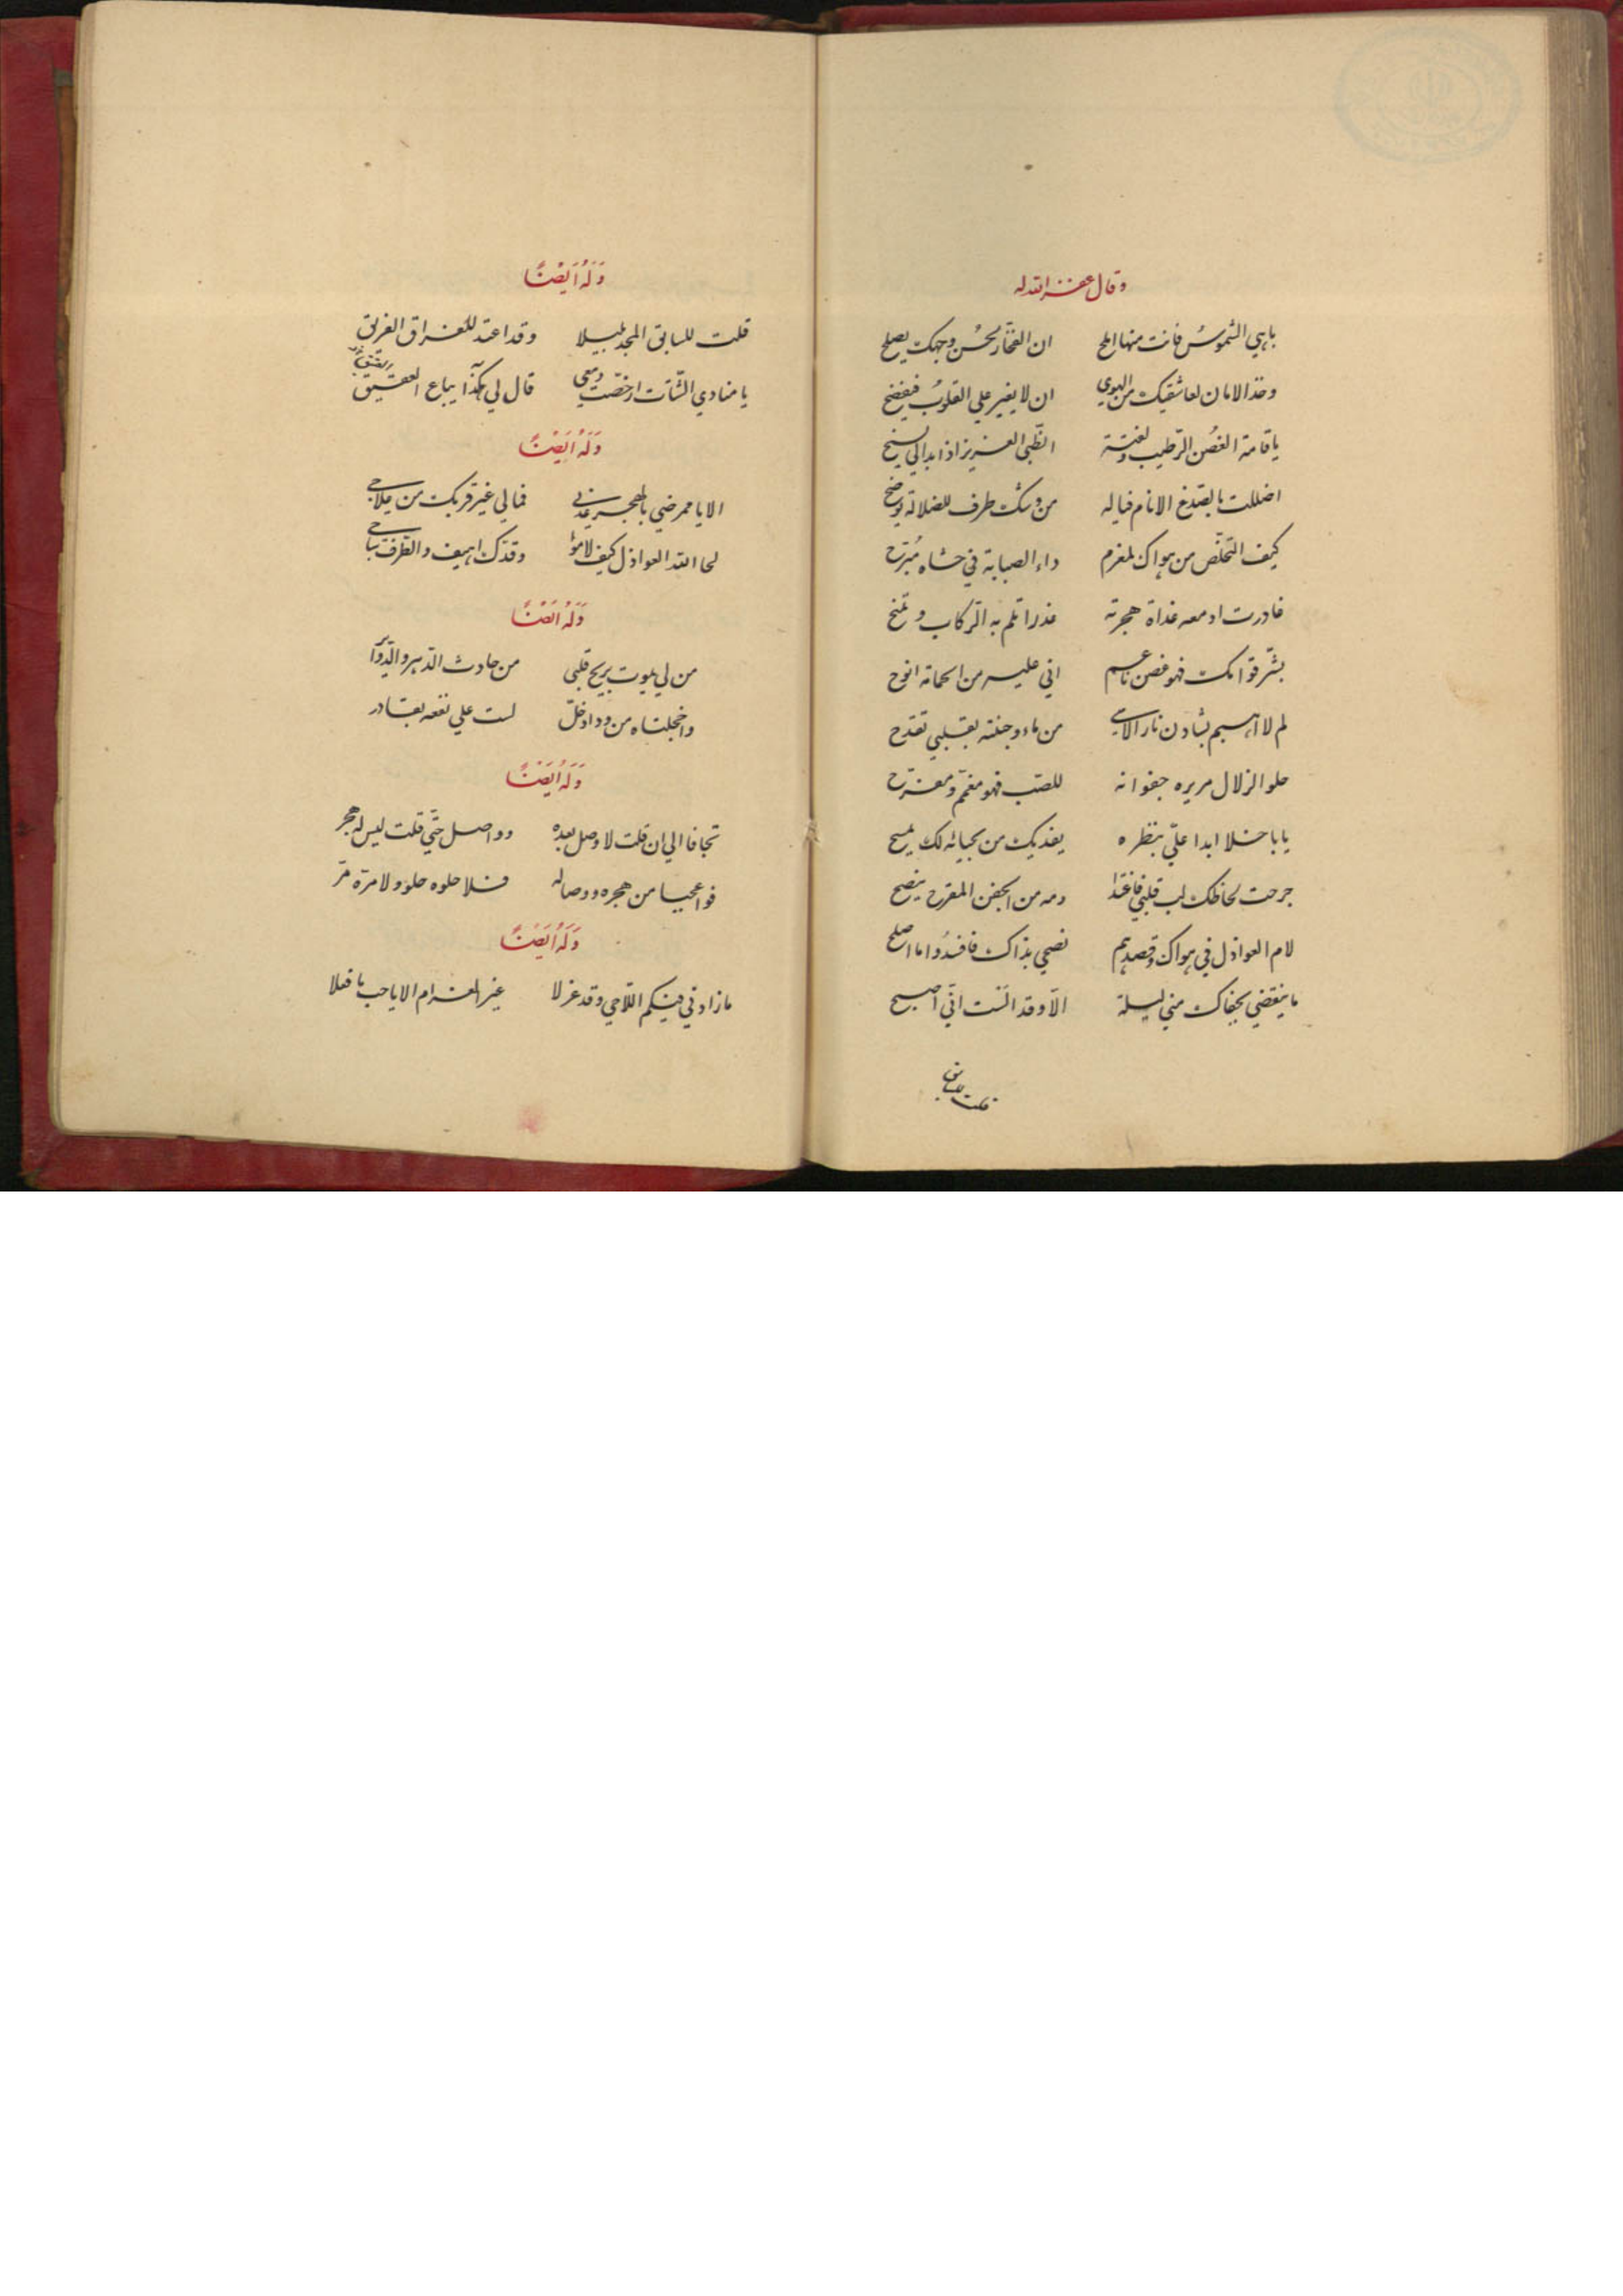 وقال غفر الله له
باهي الشموسُ فانت منها املح ان الفخار بحُسن وجهك يصلح
وخذ الامان لعاشقيك من الهوي ان لا يغير علي القلوبُ فيفضح
ياقامة الغصُن الرّطيب ولفتة الظّبي العزيز اذا بدا لي يسنح
اضللت بالصّدغ الانام فياله من وشك طرف للضلالة يوضح
كيف التخلّص من هواك لمغرم داء الصبابة في حشاه مُبَرّح
غادرت ادمعه غداة هجرته غدرا تلم به الرّكاب وتمنح
بشّر قوامك فهو غصن ناعم اني عليه من الحمامة انوح
لم لا اهيم بشادن نار الاسي من ماء وجنته بقلبي تقدح
حلو الزلال مريره جفوانه للصب فهو مغمّ ومفرّح
يا باخلا ابدا عليّ بنظره يفديك من بحياته لك يسمح
جرحت لحاظك لب قلبي فاغتذا دمه من الجفن المقرح ينضح
لام العواذل في هواك وقصدهم نصحي بذاك فافسَدُوا ما اصلح
ما ينقضي بجفاك مني ليلة الّا وقد آلَيْت انّي اصبح
قلت للسابق
وَلَهُ اَيضًا
قلت للسابق المجد طبيلا وقد اعتد للفراق الفريق
يا منادي الشّتات ارخصّت دمعي قال لي هكذا يباع العقيق
وَلَهُ اَيضًا
الا يا ممرضي بالهجر عدني فمالي غير قربك من علاج
لحا الله العواذل كيف لاموا وقدّك اهيف والطرف ساجي
وَلَهُ اَيضًا
من لي بموت يريح قلبي من حادث الدّهر والدّوائر
واخجلتاه من وداد خلّ لست علي نفعه بقادر
وَلَهُ اَيضًا
تجافا الي ان قلت لا وصل بعده وواصل حتّي قلت ليس له هجر
فواعجبا من هجره ووصاله فلا حلوه حلو ولا مرّه مرّ
وَلَهُ اَيضًا
ما زادني فيكم اللّاحي وقد عزلا غير الغرام الا يا حب ما فعلا